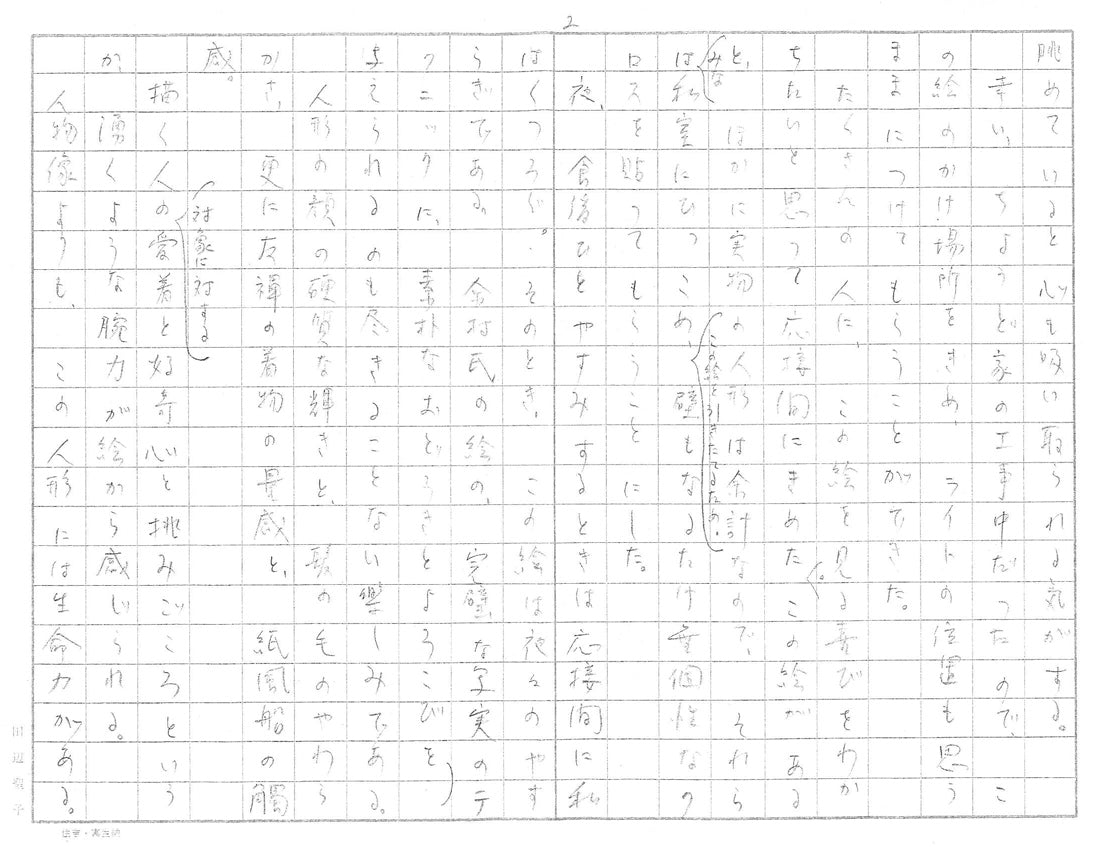 2
眺めていると心も吸い取られる気がする。
幸い、ちょうど家の工事中だったので、こ
の絵のかけ場所をきめ、ライトの位置も思う
ままにつけてもらうことができた。
たくさんの人に、この絵を見る喜びをわか
ちたいと思って応接間にきめた。この絵がある
と、ほかに実物の人形は余計なので、それら
みな
この絵を引きたてるため、
は私室にひっこめ、壁もなるたけ無個性なク
ロスを貼ってもらうことにした。
夜、食後ひとやすみするときは応接間に私
はくつろぐ。そのとき、この絵は夜々のやす
らぎである。余村氏の絵の、完璧な写実のテ
クニックに、素朴なおどろきとよろこびを
与えられるのも尽きることない楽しみである。
人形の顔の硬質な輝きと、髪の毛のやわら
かさ、更に友禅の着物の量感と、紙風船の触
感。
対象に対する
描く人の愛着と好奇心と挑みごころという
か、湧くような腕力が絵から感じられる。
人物像よりも、この人形には生命力がある。
田辺聖子